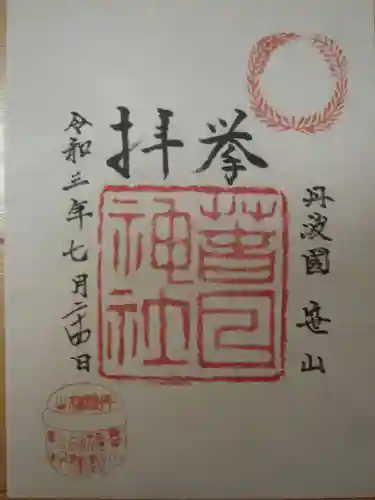 丹波國 笹山
挙拝
春日
神社
令和三年七月二十四日